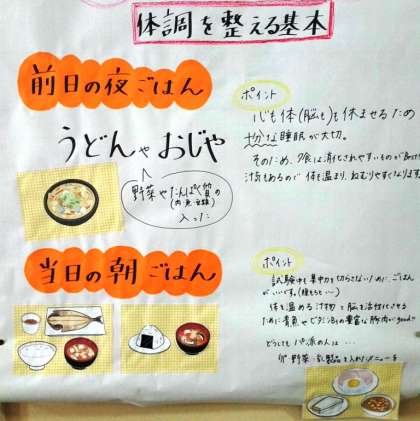 体調を整える基本
前日の夜ごはん
うどんやおじや
野菜やたんぱく質の
(肉・魚・豆類)
入った
ポイント
心も体(脳も)を休ませるため
十分な睡眠が大切。
そのため、夕食は消化されやすいものがBest!
汁物もあるので体も温まり、ねむりやすくなります。
当日の朝ごはん
ポイント
試験中も集中力を切らさないために、ごはん
がいいです。(腹もちも〜)
体を温める汁物と脳を活性化させる
ために青魚やビタミンB1の豊富な豚肉がgood
どうしてもパン派の人は…
野菜、乳製品を入れたメニューを